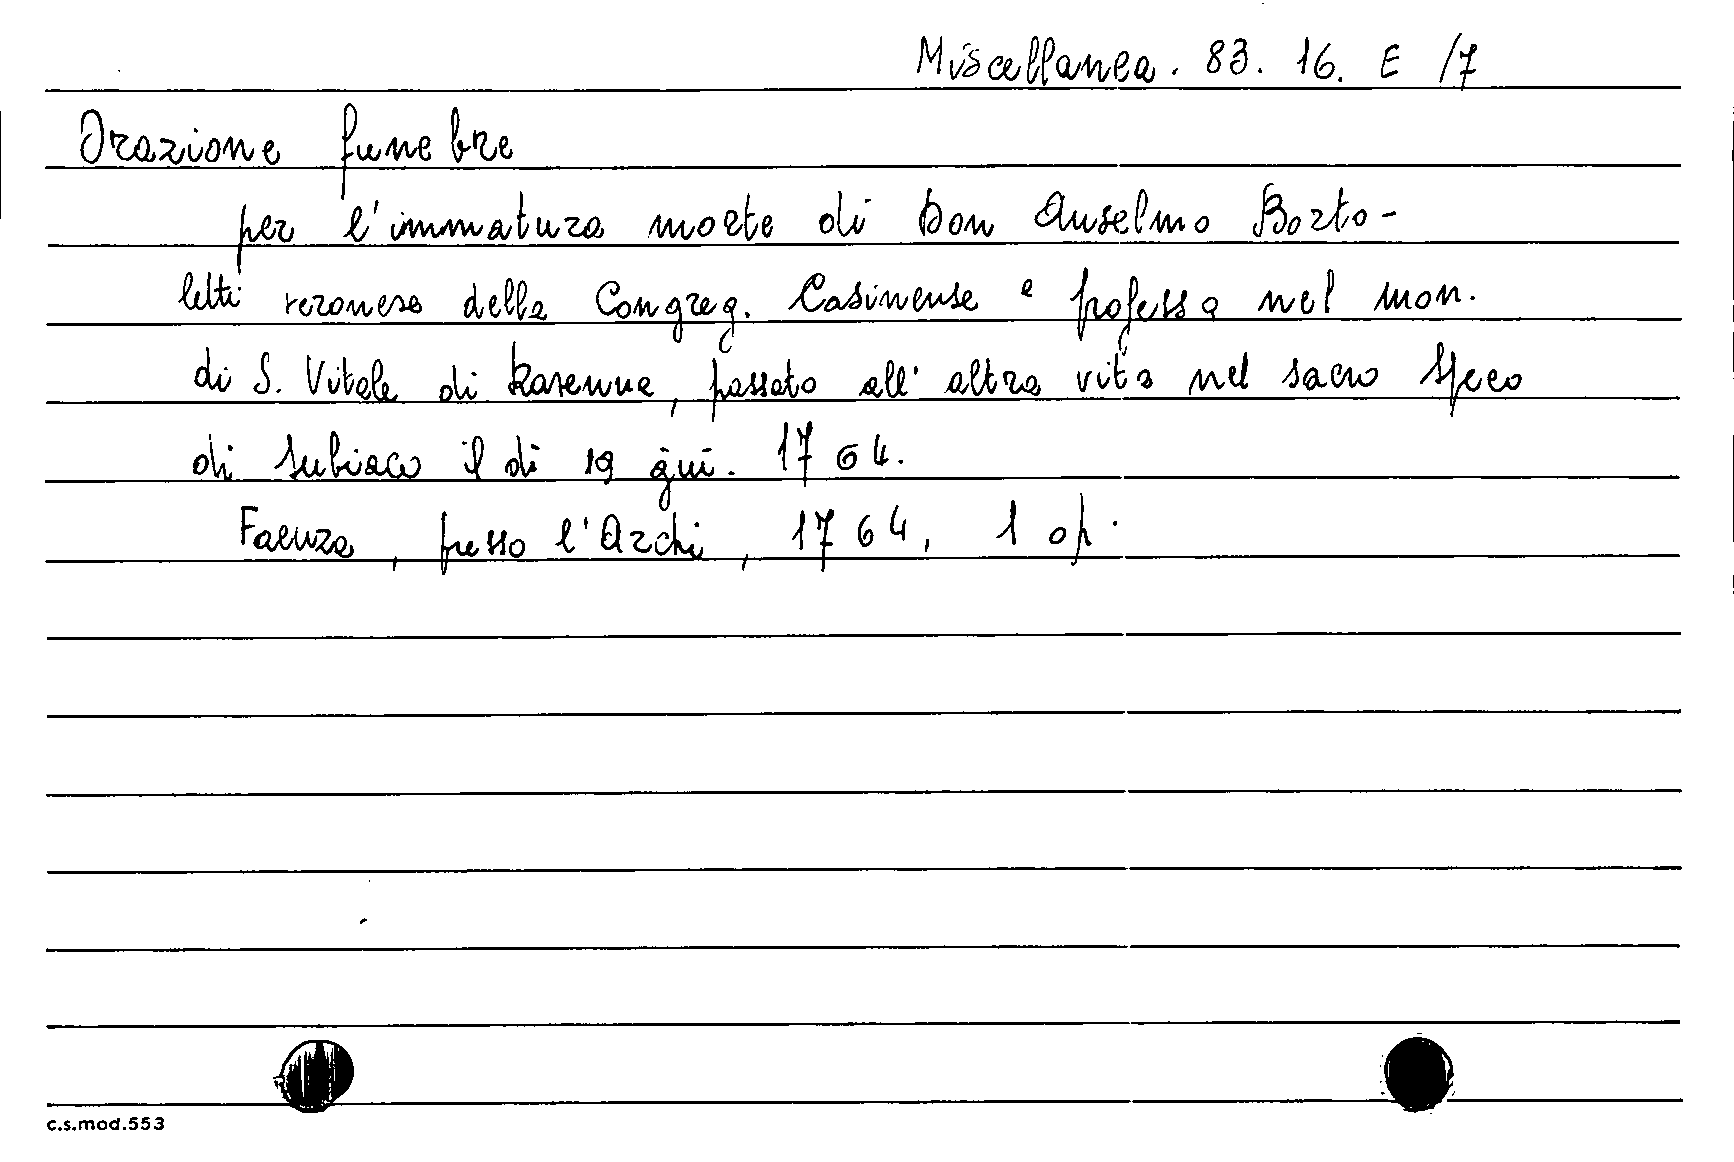 Miscellanea. 83. 16. E /7
Orazione funebre
per l'immatura morte di Don Anselmo Borto-
letti veronese della Congreg. Casinense e professo nel mon.
di S. Vitale di Ravenna, passato all' altra vita nel sacro Speco
di Subiaco il di 19 giu. 1764.
Faenza, presso l'Archi, 1764, 1 op.
c.s.mod.553